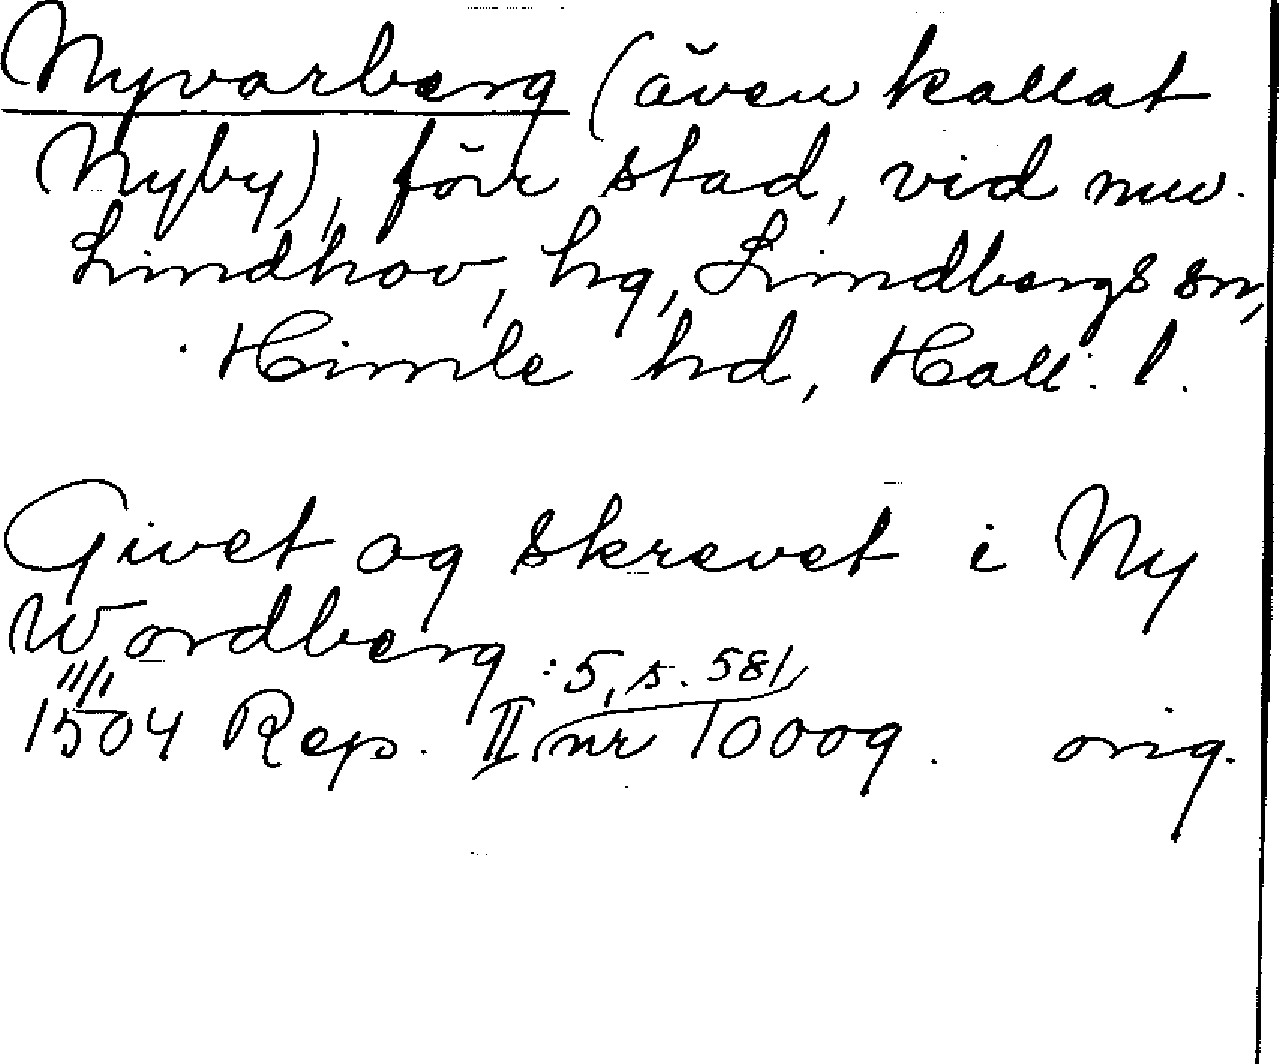 Nyvarberg (även kallat
Nyby), förr stad, vid nuv.
Lindhov, hg, Lindbergs sn,
Himle hd, Hall. l.
Givet og skrevet i Ny
Wordberg
1504 Rep. II:5, s. 581, nr 10009. orig.